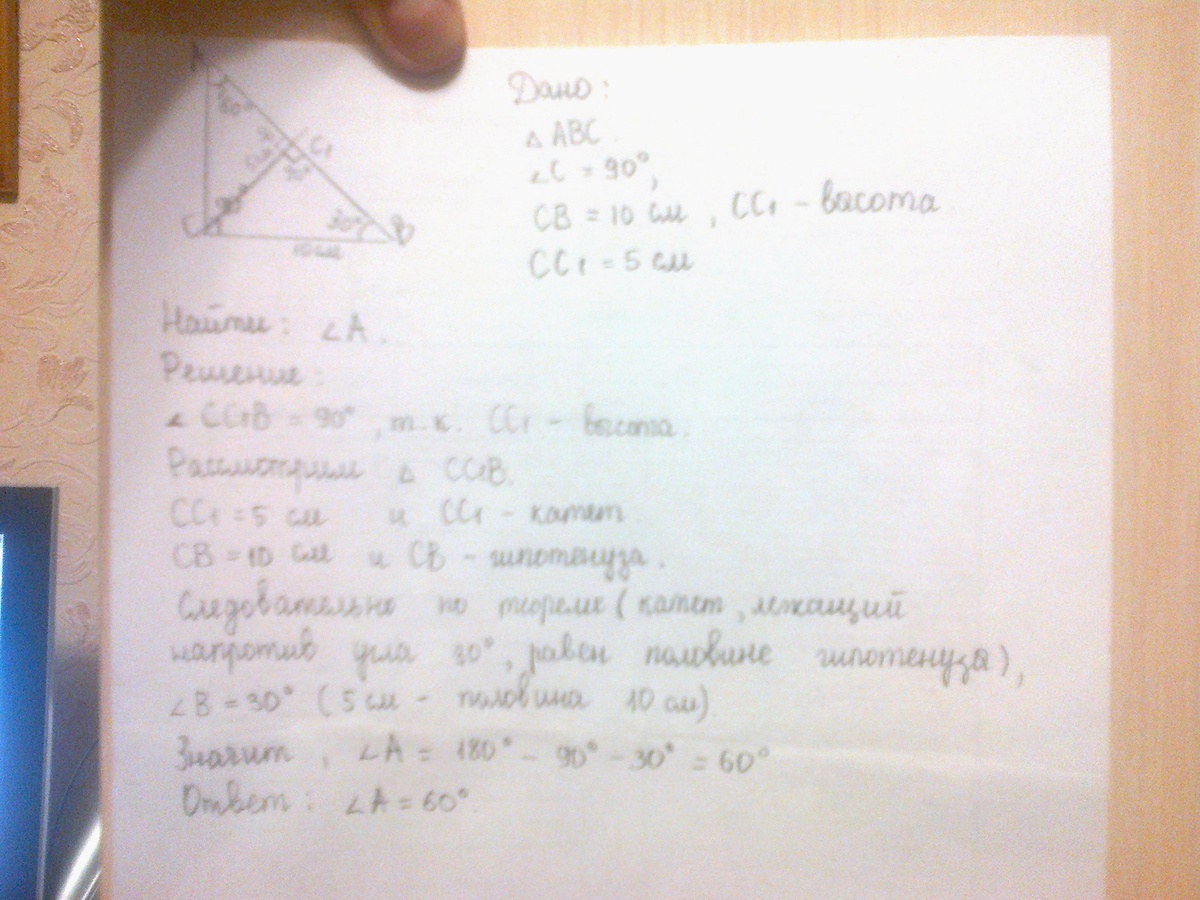 A
60°
5 см
C₁
90°
90°
30°
C
B
10 см
Дано:
△ ABC.
∠C = 90°,
CB = 10 см, CC₁ - высота
CC₁ = 5 см
Найти: ∠A.
Решение:
∠ CC₁B = 90°, т.к. CC₁ - высота.
Рассмотрим △ CC₁B.
CC₁ = 5 см и CC₁ - катет
CB = 10 см и CB - гипотенуза.
Следовательно по теореме (катет, лежащий
напротив угла 30°, равен половине гипотенуза),
∠B = 30° (5 см - половина 10 см)
Значит, ∠A = 180° - 90° - 30° = 60°
Ответ: ∠A = 60°.